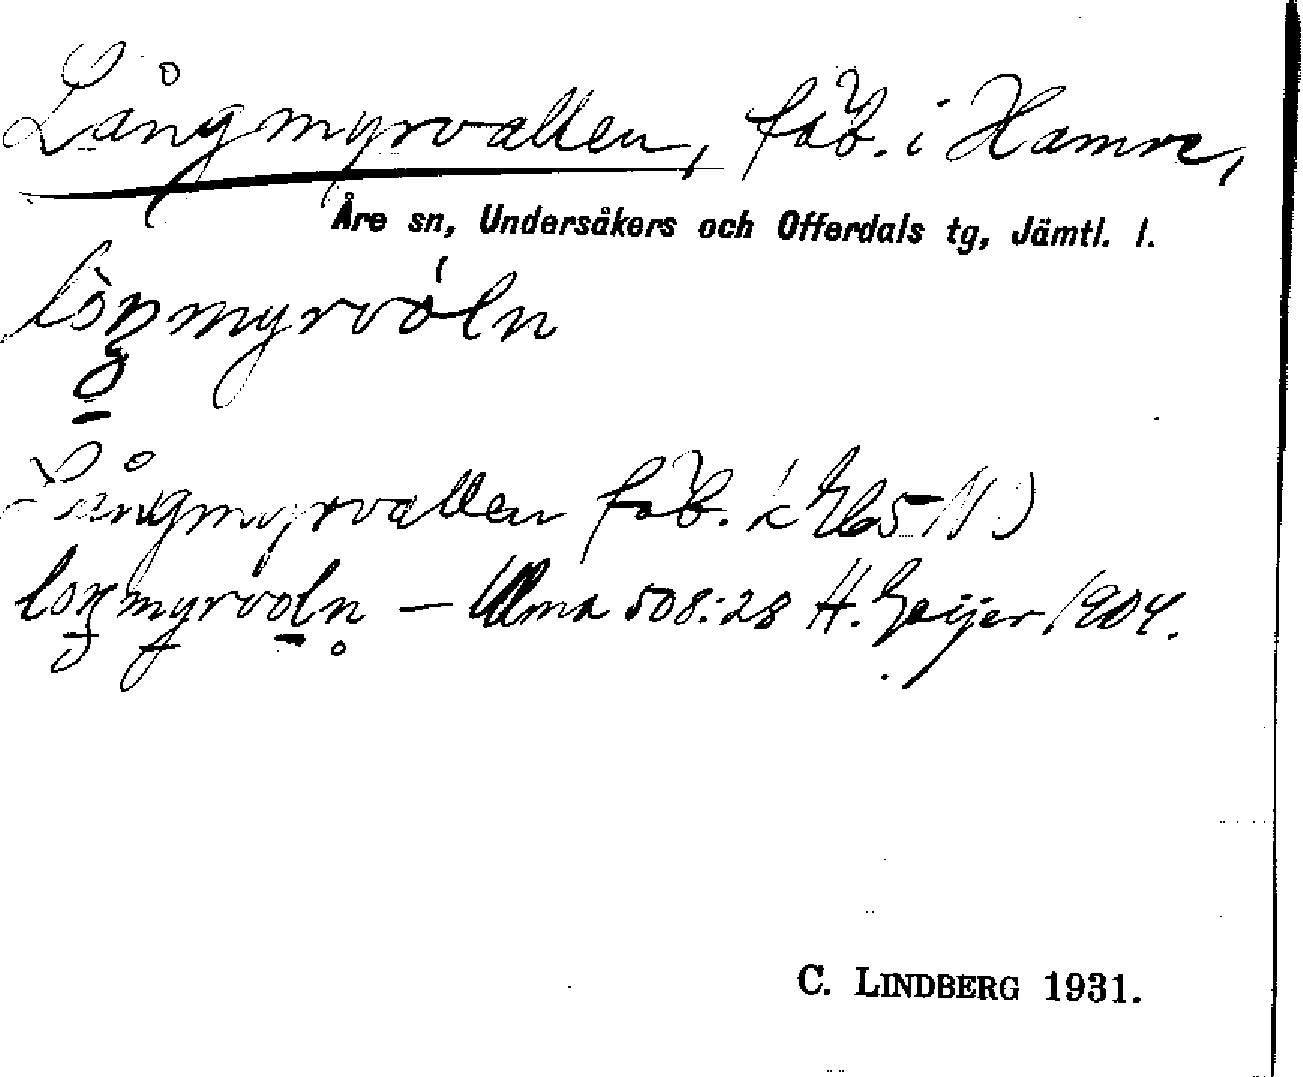 Långmyrvallen, fäb. i Hamre,
Åre sn, Undersåkers och Offerdals tg, Jämtl. l.
lòŋmyrvóln
Långmyrvallen fäb.
loŋmyrvoln̥ — Ulma 508:28 H. Geijer 1904.
C. LINDBERG 1931.